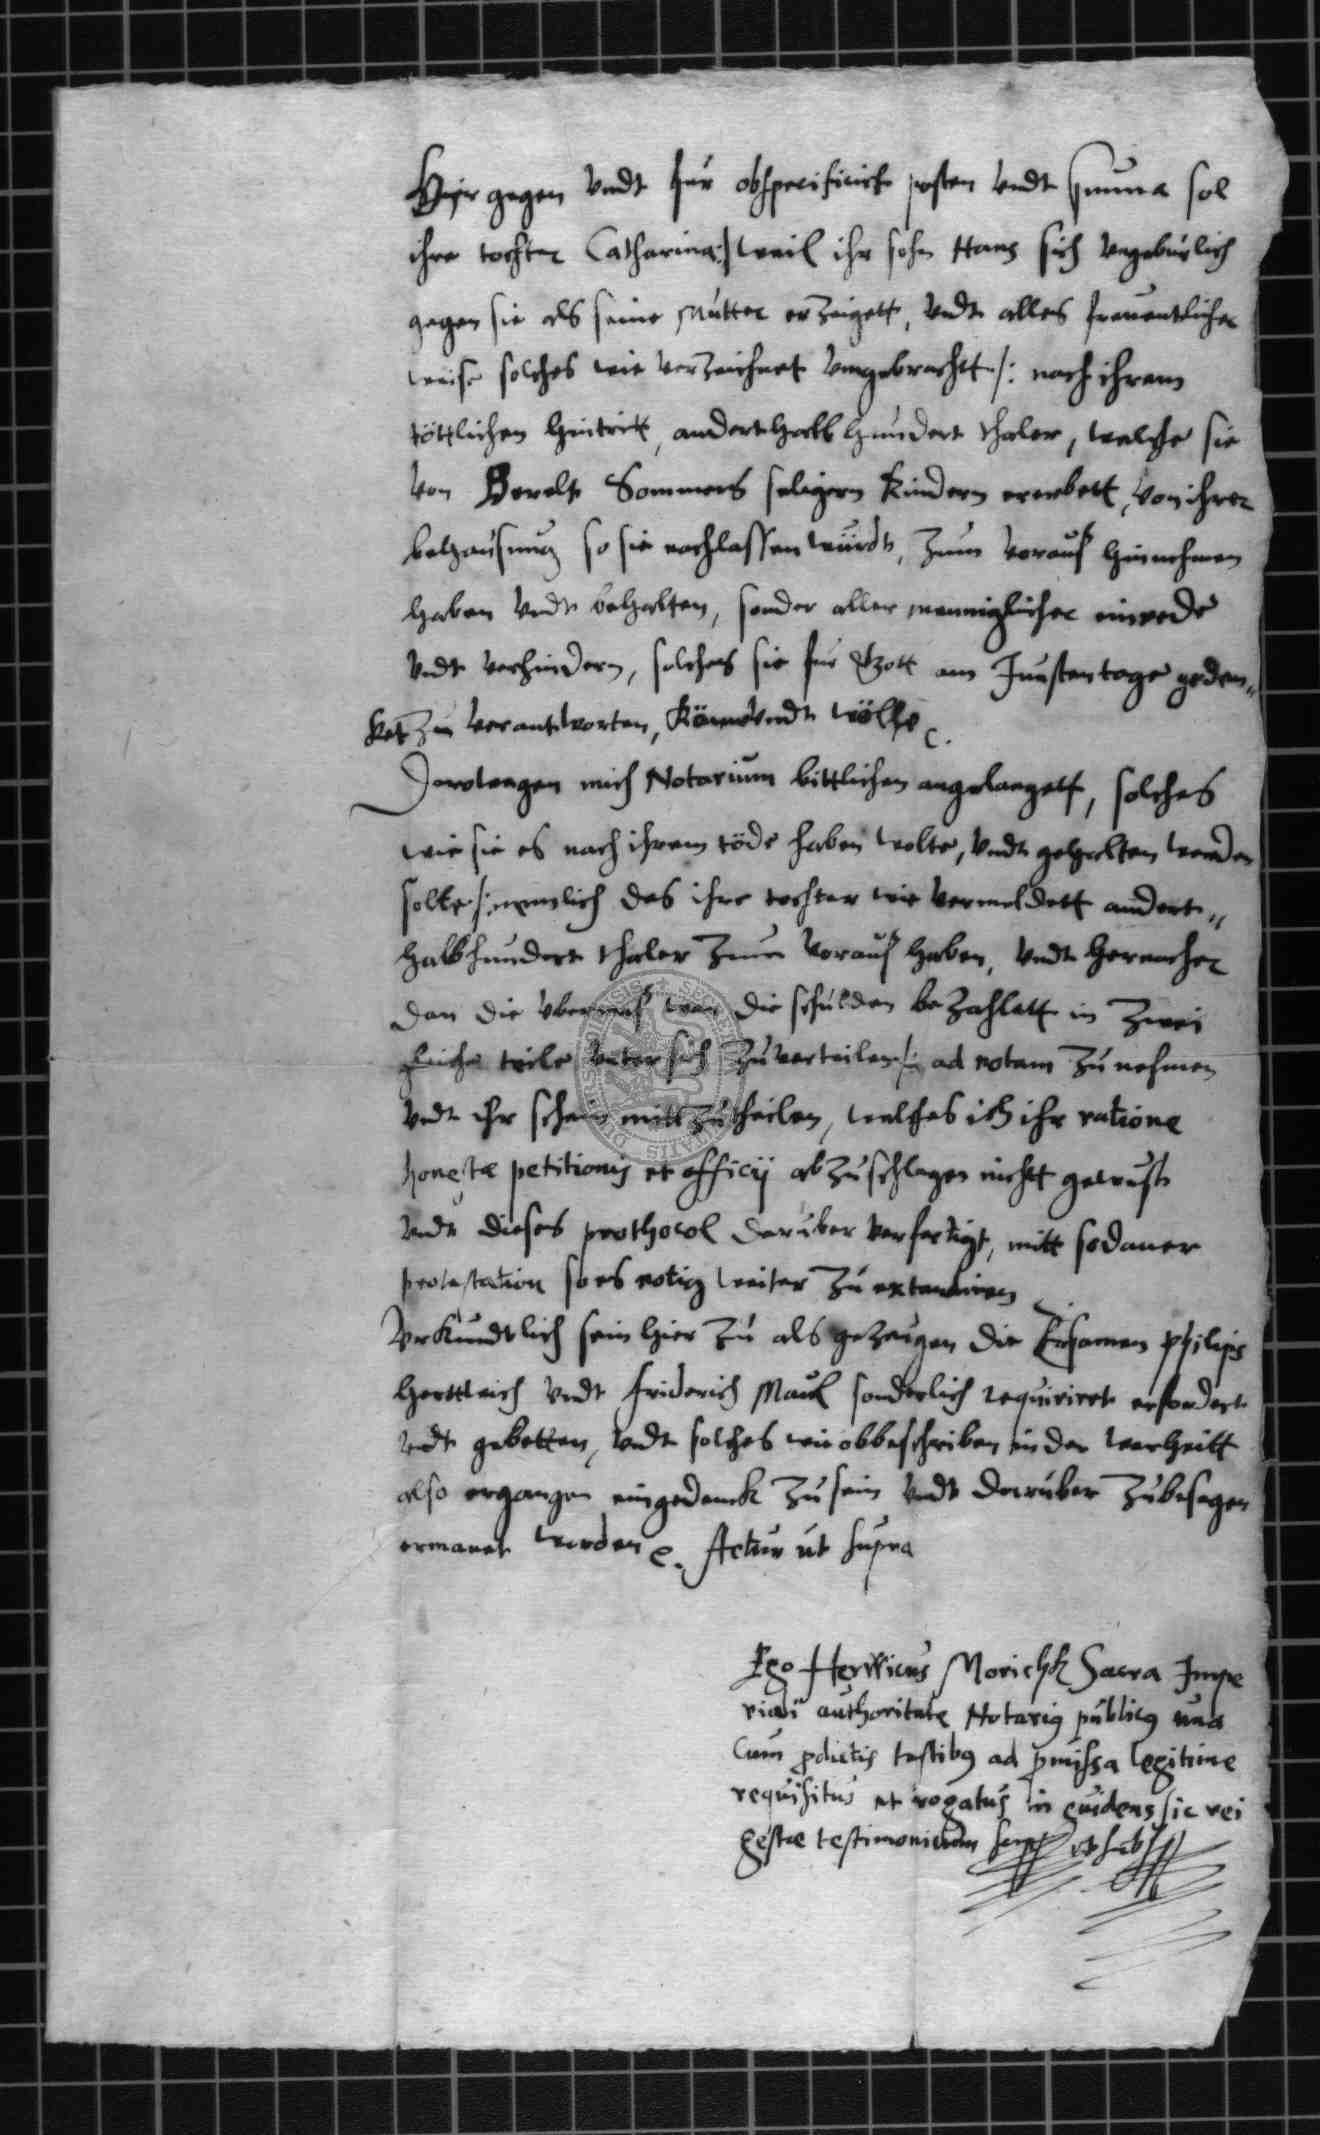 Hier gegen vndt für obspecificirt posten vndt summa sol
ihre tochter Catharina :/ weil ihr sohn Hans sich vngebürlich
gegen sie als seine Mutter erzeigett, vndt alles freuentlicher
weise solches wie verzeichnet vmgebrachtt /: nach ihrem
töttlichen hintritt, anderthalb hundert thaler, welche sie
von Bereldt Sommers seligern Kindern ererbett, von ihrer
behausung so sie nachlassen würdt, zum voraus hinnehmen
haben vndt behalten, sonder aller menniglicher einrede
vndt verhindern, solches sie für Gott am Jungstentage geden„
ket zu verantworten, könne vndt wölle
Derwegen mich Notarium bittlichen angelangett, solches
wie sie es nach ihrem tode haben wolte, vndt gehalten werden
solte /: nemlich das ihre tochter wie vermeldett andert„
halbhundert thaler zum voraus haben, vndt hernacher
dan die vbermas wan die schulden bezahlett in zwei
gleiche teile vnter sich zuverteilen /: ad notam zu nehmen
vndt ihr schein mittzutheilen, welches ich ihr ratione
honestæ petitionis et officij abzuschlagen nichtt gewust
vndt dieses prothocol darüber verfertigt, mitt sodaner
protestation so es notig weiter zu extendiren
Vrkundtlich sein hier zu als gezeugen die Ersamen Philips
Herttleich vndt Friderich Maul sonderlich requirirt erfordert
vndt gebetten, vndt solches wie obbeschriben in der warheitt
also ergangen eingedenck zu sein vndt darüber zubesagen
ermanet worden. Actum ut supra
Ego Herwicus Morichk Sacra Impe
riali authoritate Notarius publicus una
cum prædictis testibus ad præmissa legitime
requisitus et rogatus in euidens sic rei
gestæ testimonium scrips. et subss.